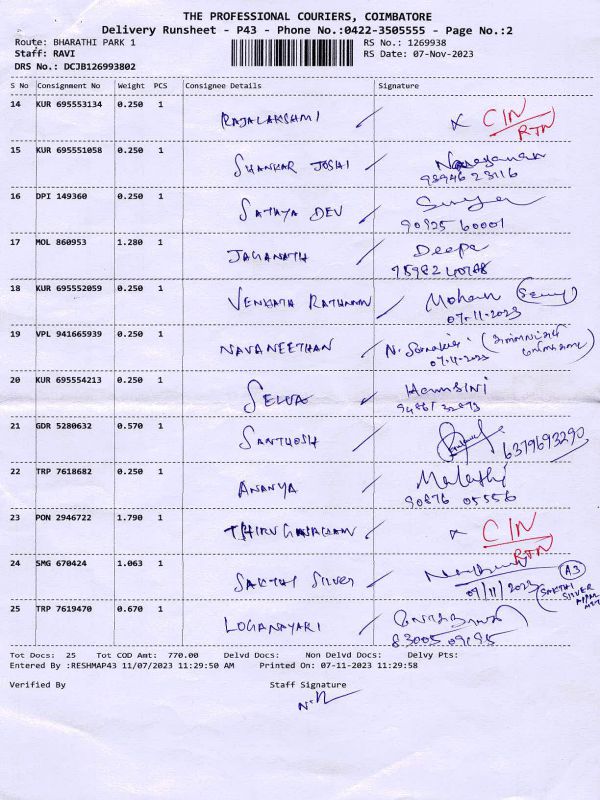 THE PROFESSIONAL COURIERS, COIMBATORE
Delivery Runsheet - P43 - Phone No.:0422-3505555 - Page No.:2
Route: BHARATHI PARK 1 RS No.: 1269938
Staff: RAVI RS Date: 07-Nov-2023
DRS No.: DCJB126993802
S No Consignment No Weight PCS Consignee Details Signature
14 KUR 695553134 0.250 1 RAJALAKSHMI / x CIN
RTN
15 KUR 695551058 0.250 1 SHANKAR JOSHI / Narayanan
98946 23116
16 DPI 149360 0.250 1 SATHYA DEV / Surya
90925 60001
17 MOL 860953 1.280 1 JAGANATH / Deepa
18 KUR 695552059 0.250 1 VENKATA RATHNAM / Mohan
07-11-2023
19 VPL 941665939 0.250 1 NAVANEETHAN / N.
07-11-2023
20 KUR 695554213 0.250 1 SELVA / Hamsini
21 GDR 5280632 0.570 1 SANTHOSH / 6379693290
22 TRP 7618682 0.250 1 ANANYA / Malathi
90876 05556
23 PON 2946722 1.790 1 x CIN
RTN
24 SMG 670424 1.063 1 SAKTHI SILVER / A3
07/11/2023 SAKTHI
SILVER
25 TRP 7619470 0.670 1 LOGANAYAKI /
Tot Docs: 25 Tot COD Amt: 770.00 Delvd Docs: Non Delvd Docs: Delvy Pts:
Entered By :RESHMAP43 11/07/2023 11:29:50 AM Printed On: 07-11-2023 11:29:58
Verified By Staff Signature